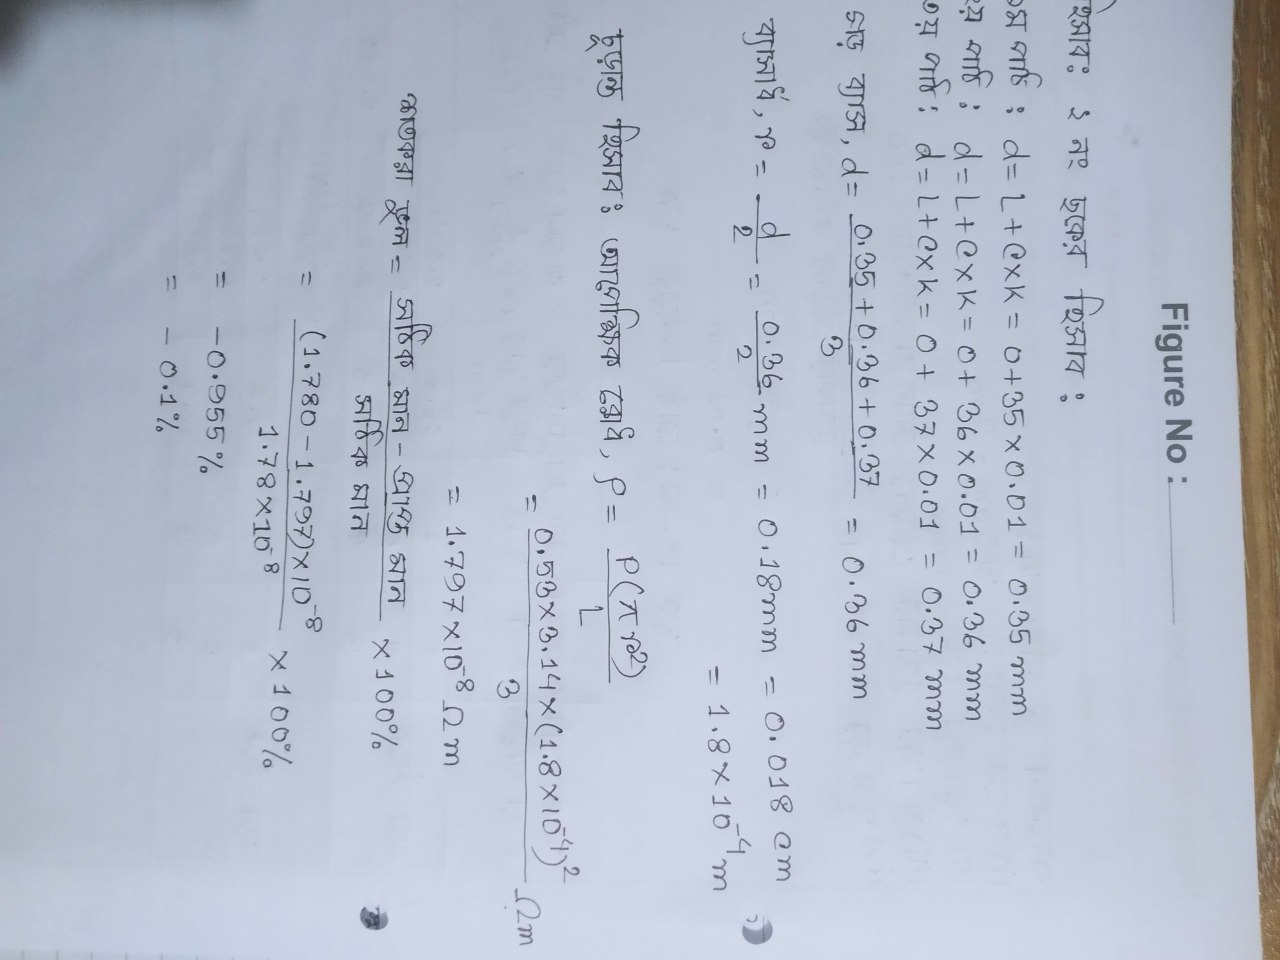 Figure No :
হিসাব: ২ নং ছকের হিসাব :
১ম পাঠ : d = L + C×K = 0+35×0.01 = 0.35 mm
২য় পাঠ : d = L+C×K = 0+ 36×0.01 = 0.36 mm
৩য় পাঠ : d = L+C×K = 0+ 37×0.01 = 0.37 mm
গড় ব্যাস, d = (0.35+0.36+0.37)/3 = 0.36 mm
ব্যাসার্ধ, r = d/2 = 0.36/2 mm = 0.18mm = 0.018 cm
= 1.8×10⁻⁴ m
চূড়ান্ত হিসাব: আপেক্ষিক রোধ, ρ = P(πr²)/L
= 0.53×3.14×(1.8×10⁻⁴)²/3 Ωm
= 1.797×10⁻⁸ Ωm
শতকরা ভুল = (সঠিক মান - প্রাপ্ত মান)/সঠিক মান × 100%
= (1.780 - 1.797)×10⁻⁸/1.78×10⁻⁸ × 100%
= -0.955%
= - 0.1%